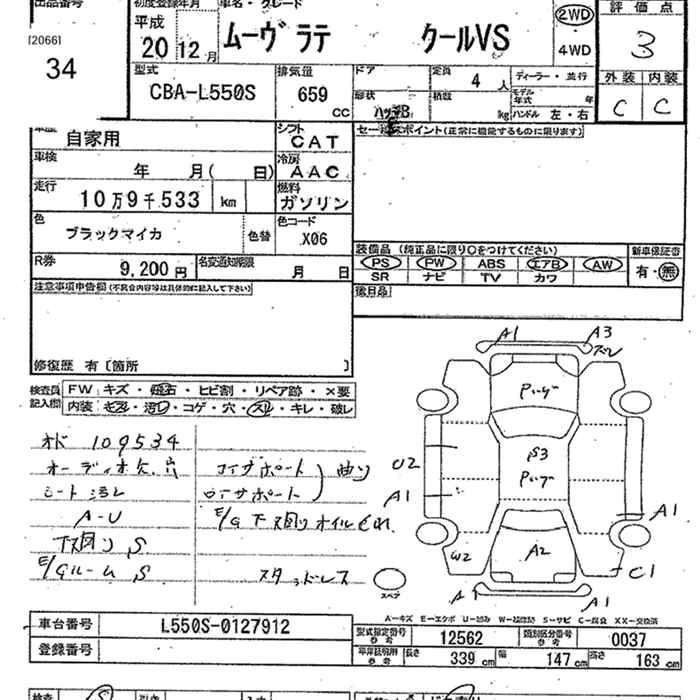 出品番号
[2066]
34
初度登録年月
平成
20 12 月
車名・グレード
ムーヴ ラテ クールVS
2WD
4WD
評価点
3
外装 内装
C C
型式
CBA-L550S
排気量
659 CC
ドア
形状
定員
4 人
積載
kg
ディーラー・並行
モデル年式 年
ハンドル 左・右
自家用
シフト
CAT
車検
年 月( 日)
冷房
AAC
走行
10万9千.533 km
燃料
ガソリン
色
ブラックマイカ
色替
色コード
X06
R券
9,200 円
名変通知期限
月 日
セールスポイント(正常に機能するものに限ります)
装備品 (純正品に限り○をつけてください)
PS PW ABS エアB AW
SR ナビ TV カワ
新車保証書
有・無
注意事項申告欄(不具合内容等は具体的に記入して下さい)
修復歴 有〔箇所 〕
検査員記入欄
FW キズ・飛石・ヒビ割・リペア跡・×要
内装 ・コゲ・穴・スレ・キレ・破レ
オド 109534
オーディオ欠.穴
シート汚レ
A-U
下廻り S
E/Gルーム S
コアサポート
ロアサポート
曲り
E/G下廻りオイルもれ
スタッドレス
A1
A3
ズレ
P
S3
P
U2
A1
A1
W2
A2
C1
A1
A1
スペア
A-キズ E-エクボ U-凹み W-補修跡 S-サビ C-腐食 XX-交換済
車台番号
L550S-0127912
登録番号
型式指定番号
参考
12562
類別区分番号
参考
0037
車岸証明用
参考
長さ 339 cm
幅 147 cm
高さ 163 cm